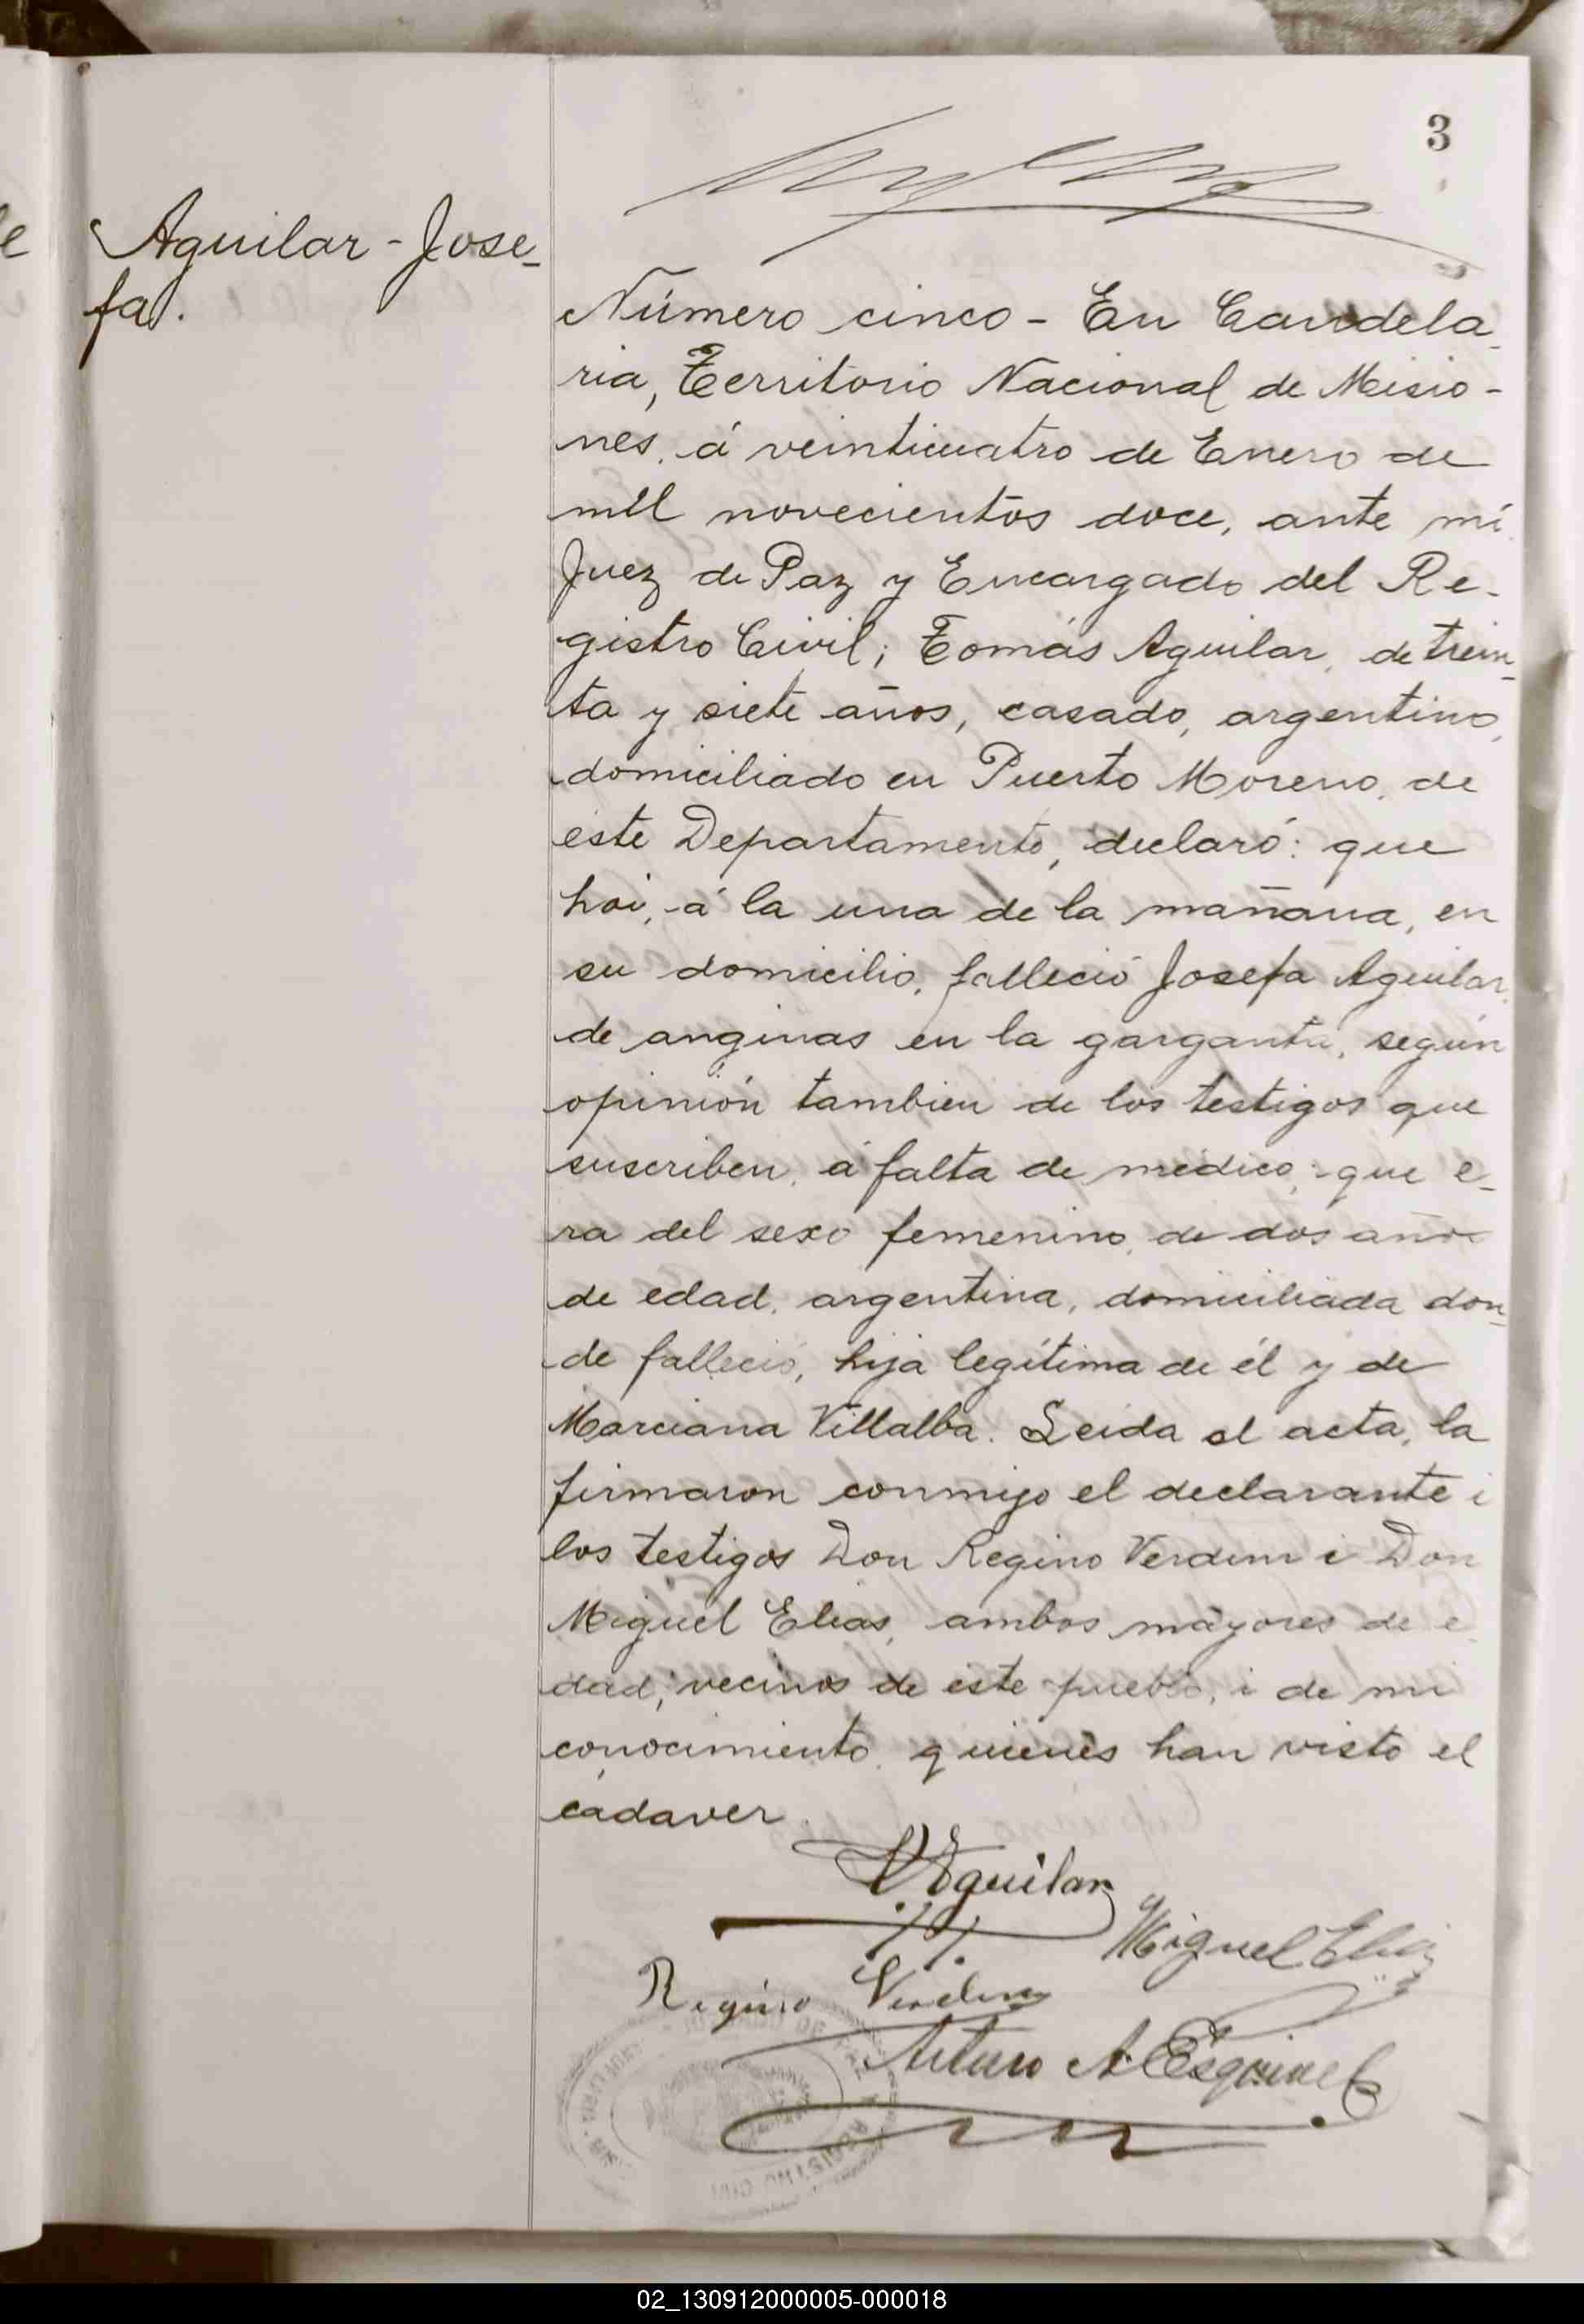 3
Aguilar - Jose_
fa.
Número cinco - En Candela_
ria, Territorio Nacional de Misio -
nes, á veinticuatro de Enero de
mil novecientos doce, ante mí
Juez de Paz y Encargado del Re-
gistro Civil; Tomás Aguilar, de trein_
ta y siete años, casado, argentino,
domiciliado en Puerto Moreno, de
este Departamento, declaró: que
hoi, á la una de la mañana, en
su domicilio, falleció Josefa Aguilar,
de anginas en la garganta, según
opinión tambien de los testigos que
suscriben, á falta de médico; que e_
ra del sexo femenino, de dos años
de edad, argentina, domiciliada don_
de falleció, hija legítima de él y de
Marciana Villalba. Leida el acta, la
firmaron conmigo el declarante i
los testigos Don Regino Verdun i Don
Miguel Elias, ambos mayores de e_
dad, vecinos de este pueblo, i de mi
conocimiento, quienes han visto el
cádaver.
Aguilar
Miguel Elias
Regino Verdun
Arturo A. Esquivel
02_130912000005-000018